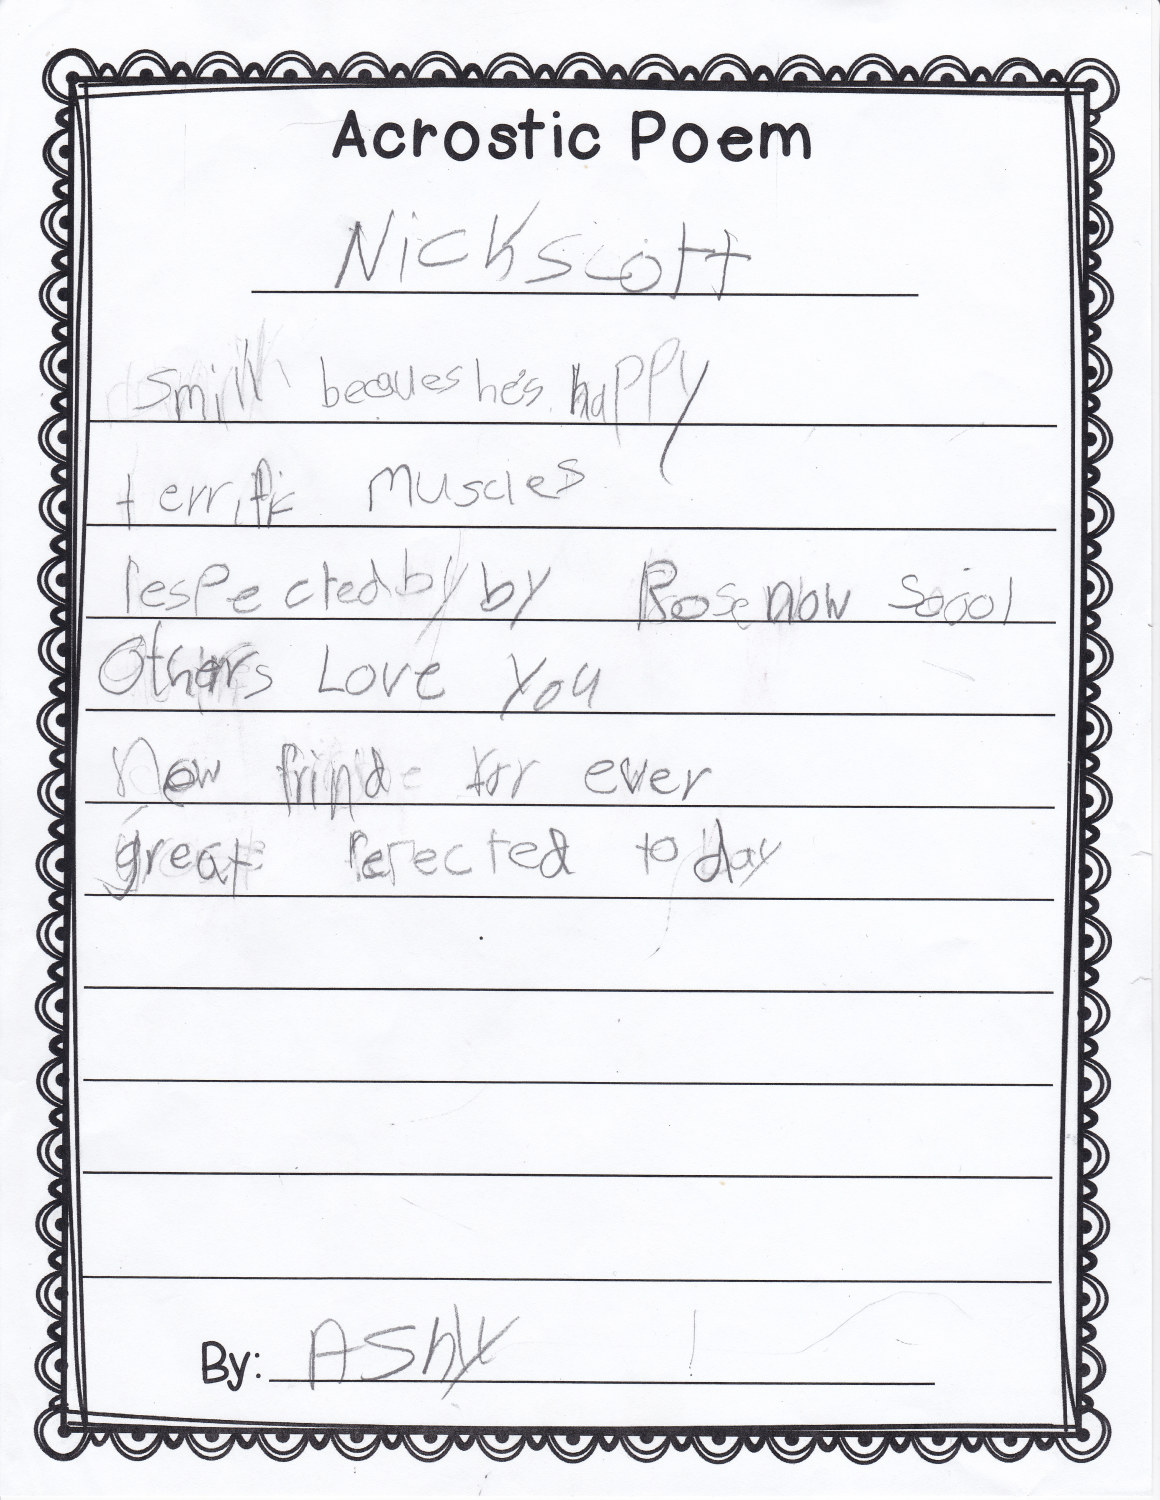 Acrostic Poem
Nick scott
Smill becaues he's happy
terrifk Muscles
respected by by Rosenow Soool
Others Love you
New frinde for ever
great rerected today
By: Ashly